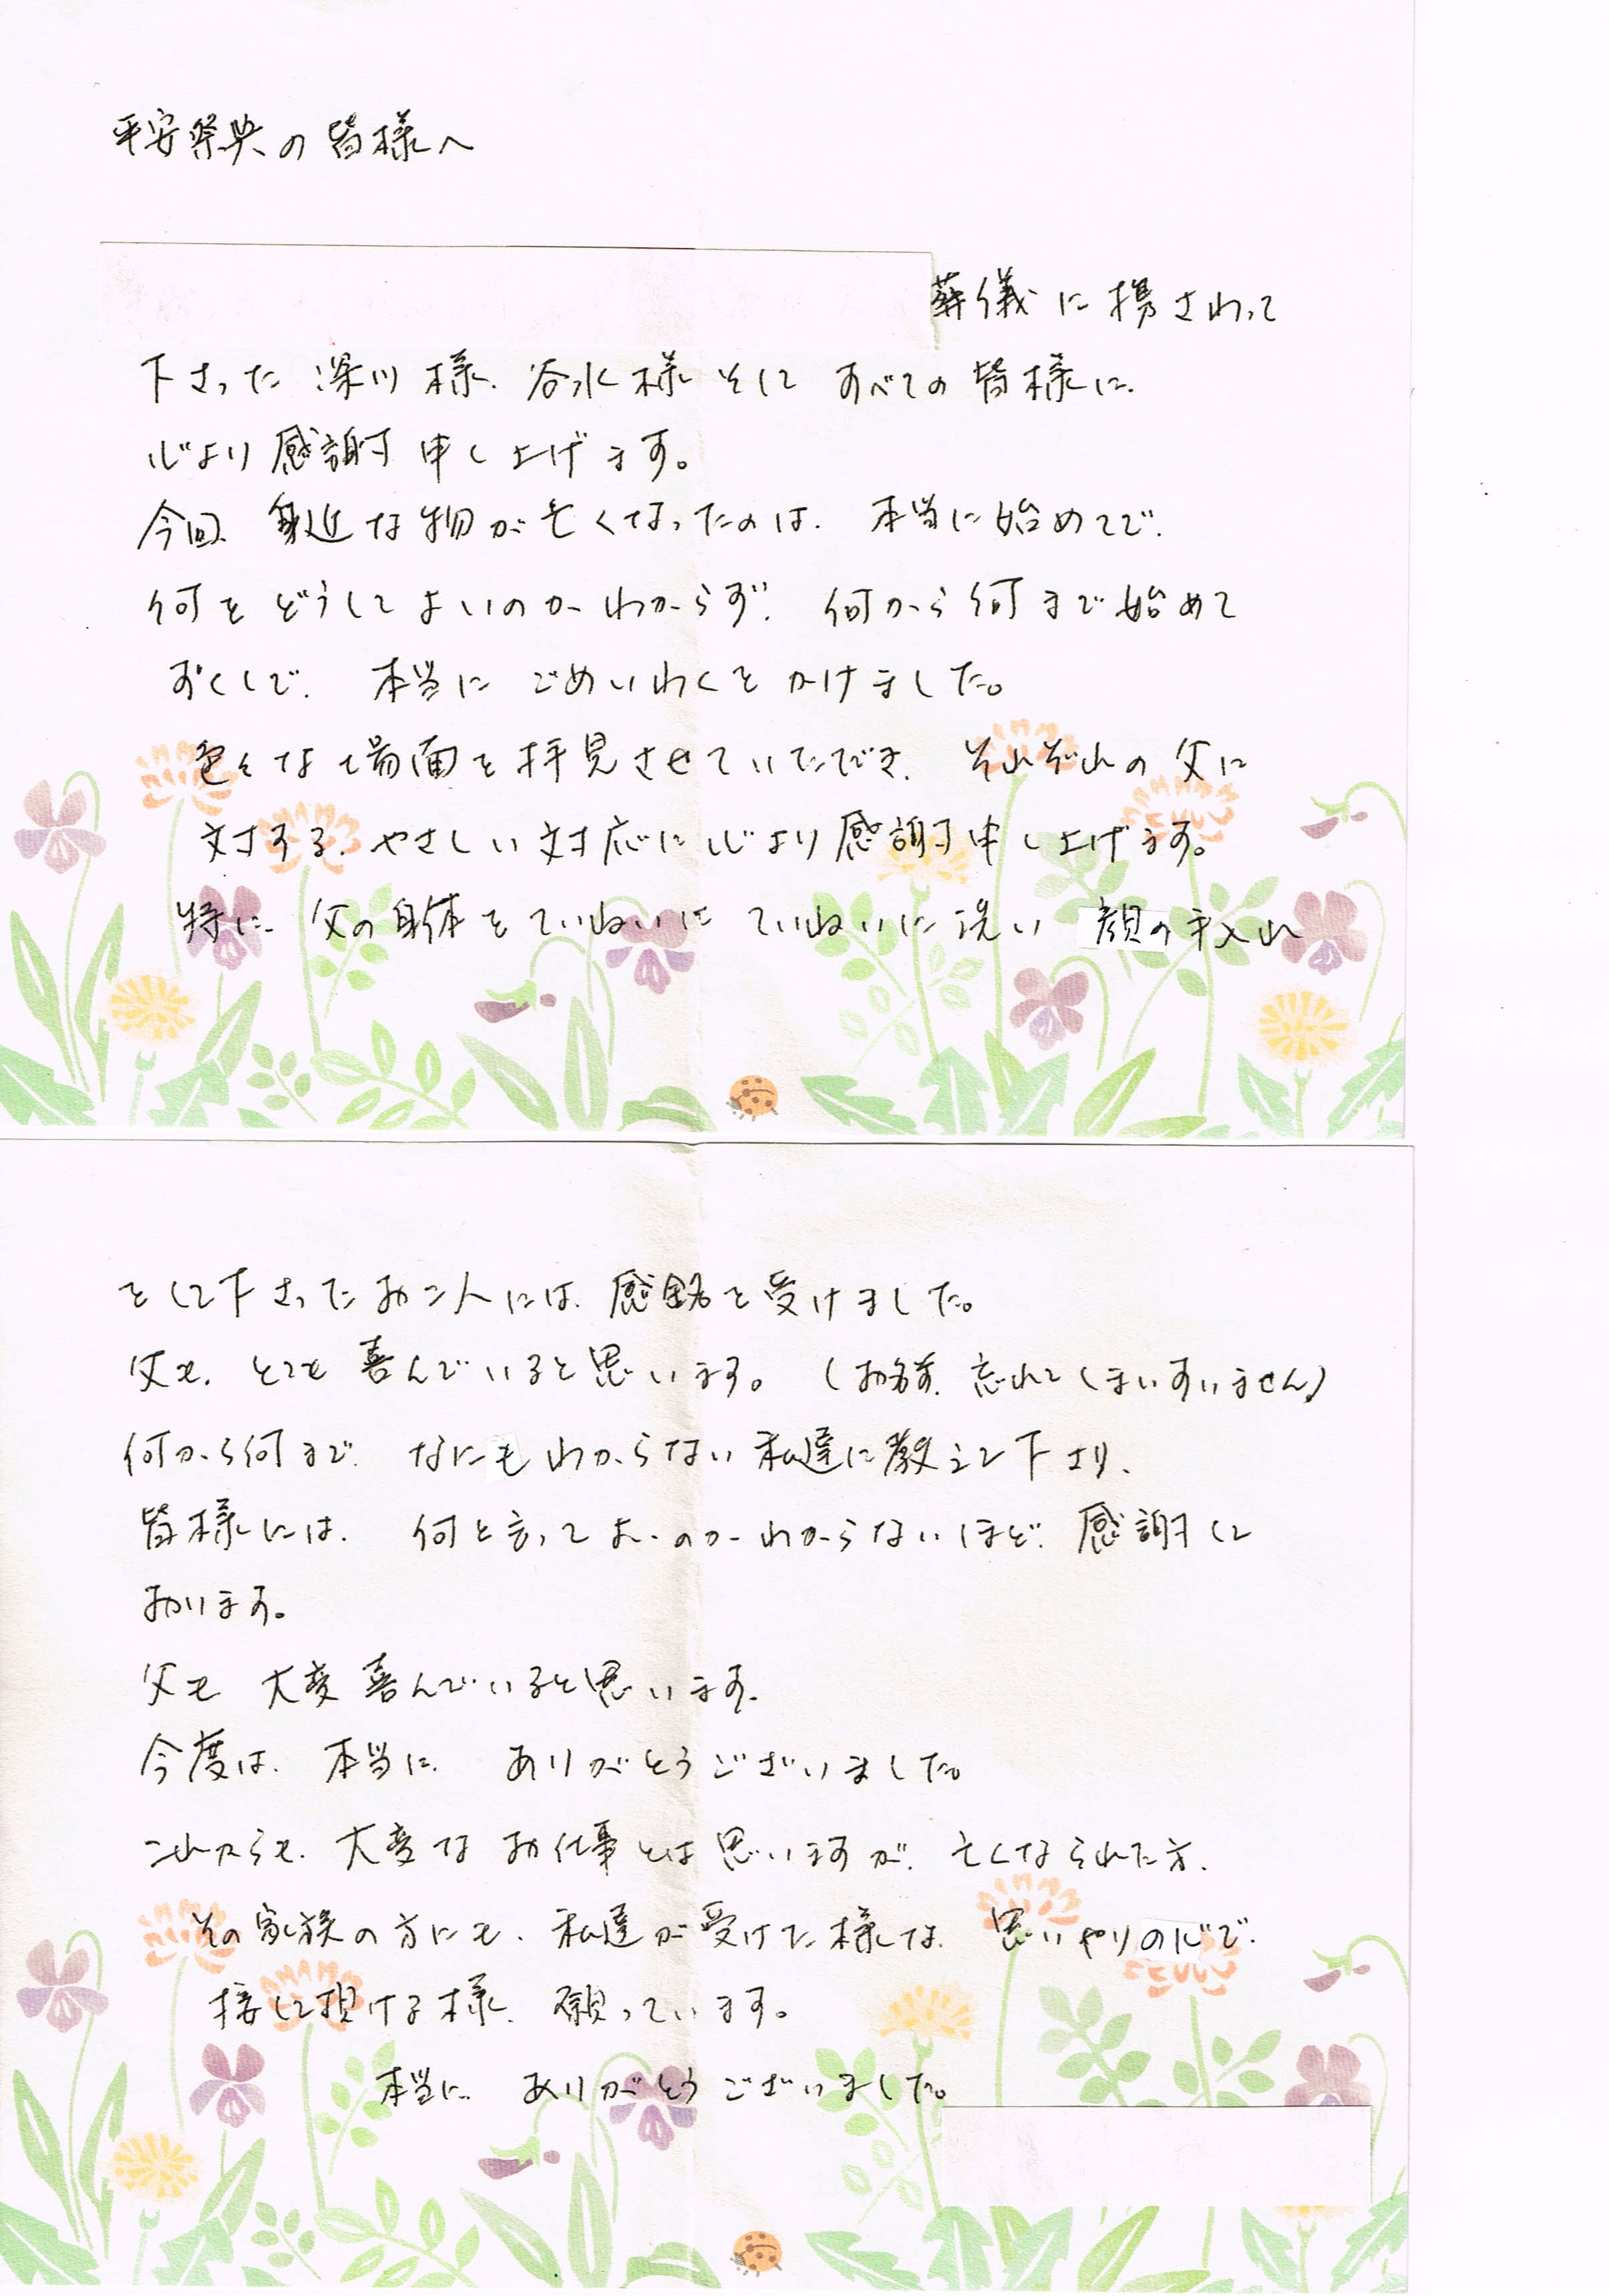 平安祭典の皆様へ
葬儀に携されって
下さった深川様、谷水様そして すべての皆様に、
心より感謝申し上げます。
今回、身近な物が亡くなったのは、本当に始めてで、
何をどうしてよいのかわからず、何から何まで始めて
ずくしで、本当にごめいわくをかけました。
色々なて場面を拝見させていただき、それぞれの父に
対する、やさしい対応に心より感謝申し上げます。
特に、父の身体をていねいにていねいに洗い 顔の手入れ
をして下さったお二人には、感銘を受けました。
父も、とても喜んでいると思います。(お名前、忘れてしまいすいません)
何から何まで、なにもわからない私達に教えて下さり、
皆様には、何と言ってよいのかわからないほど、感謝して
おります。
父も 大変喜んでいると思います。
今度は、本当に、ありがとうございました。
これからも、大変なお仕事とは思いますが、亡くなられた方、
その家族の方にも、私達が受けた様な、思いやりの心で、
接して頂ける様、願っています。
本当に、ありがとうございました。